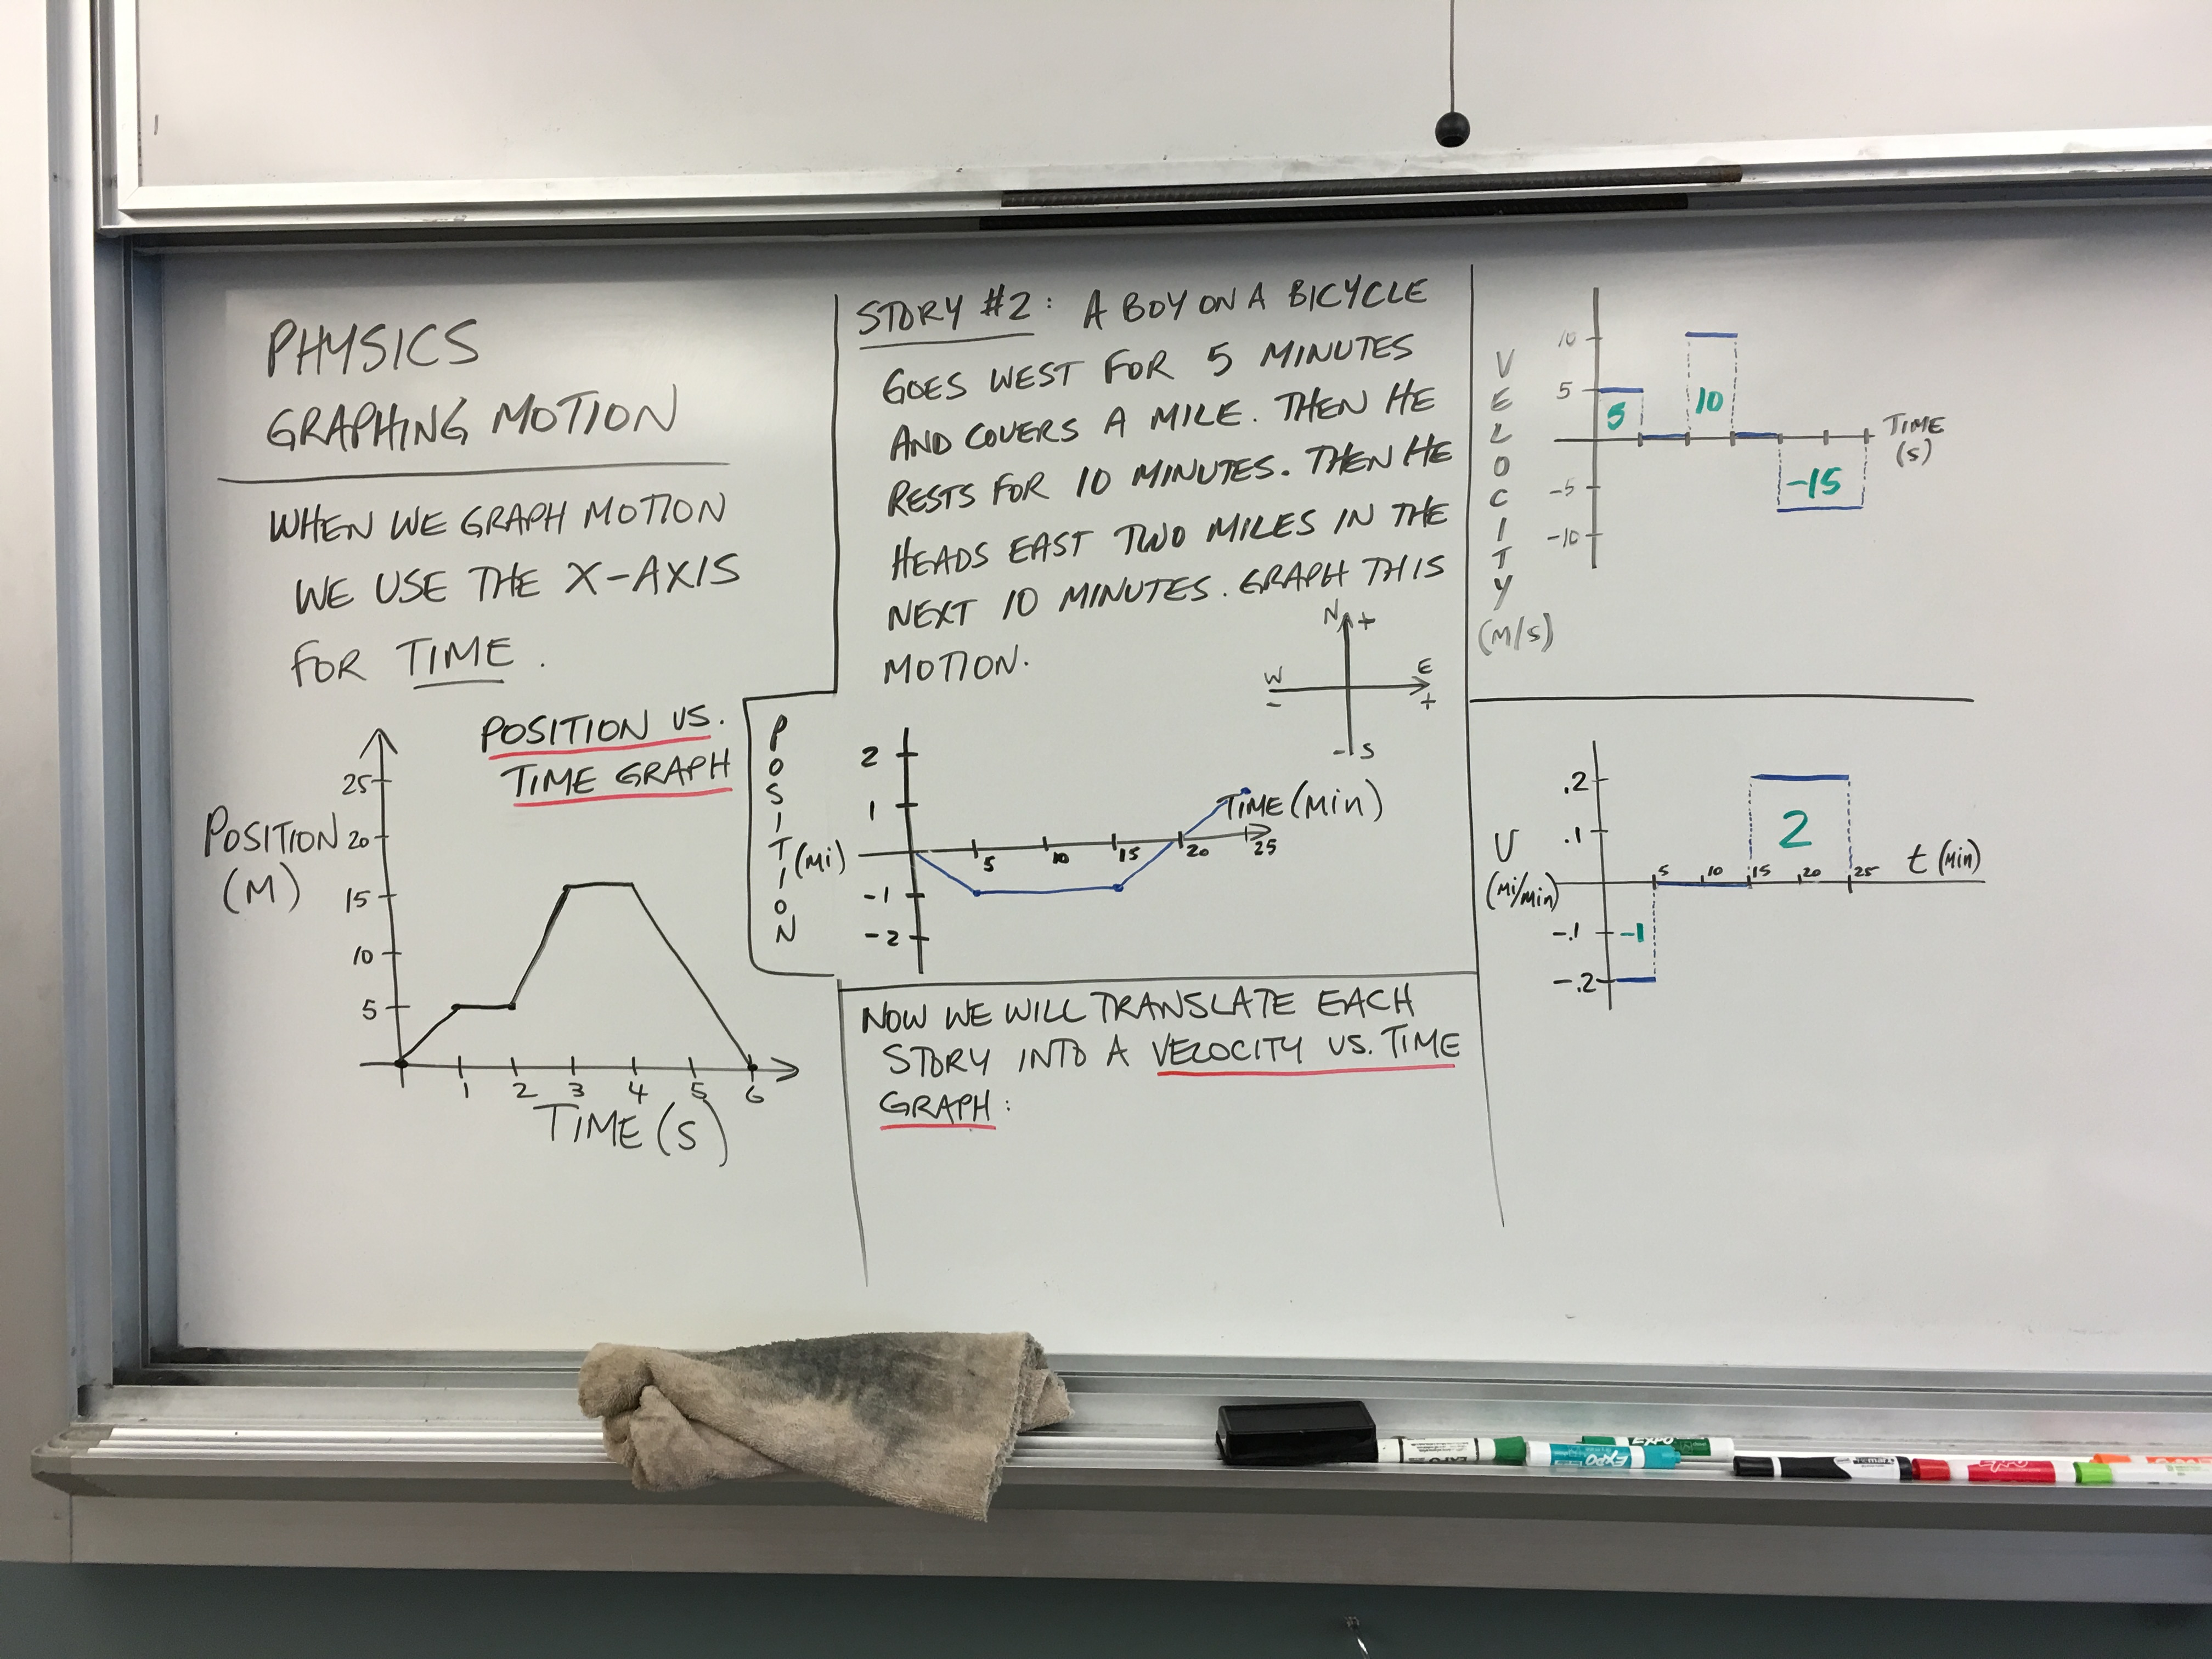 PHYSICS
GRAPHING MOTION
WHEN WE GRAPH MOTION
WE USE THE X-AXIS
FOR TIME.
POSITION VS.
TIME GRAPH
POSITION
(M)
25
20
15
10
5
1 2 3 4 5 6
TIME (S)
STORY #2: A BOY ON A BICYCLE
GOES WEST FOR 5 MINUTES
AND COVERS A MILE. THEN HE
RESTS FOR 10 MINUTES. THEN HE
HEADS EAST TWO MILES IN THE
NEXT 10 MINUTES. GRAPH THIS
MOTION.
N +
W E
- +
- S
POSITION
(Mi)
2
1
-1
-2
TIME (Min)
5 10 15 20 25
NOW WE WILL TRANSLATE EACH
STORY INTO A VELOCITY VS. TIME
GRAPH:
VELOCITY
(M/S)
10
5
-5
-10
5 10 -15
TIME
(S)
V
(Mi/min)
.2
.1
-.1
-.2
-1 2
5 10 15 20 25
t (Min)
EXPO
EXPO
EXPO